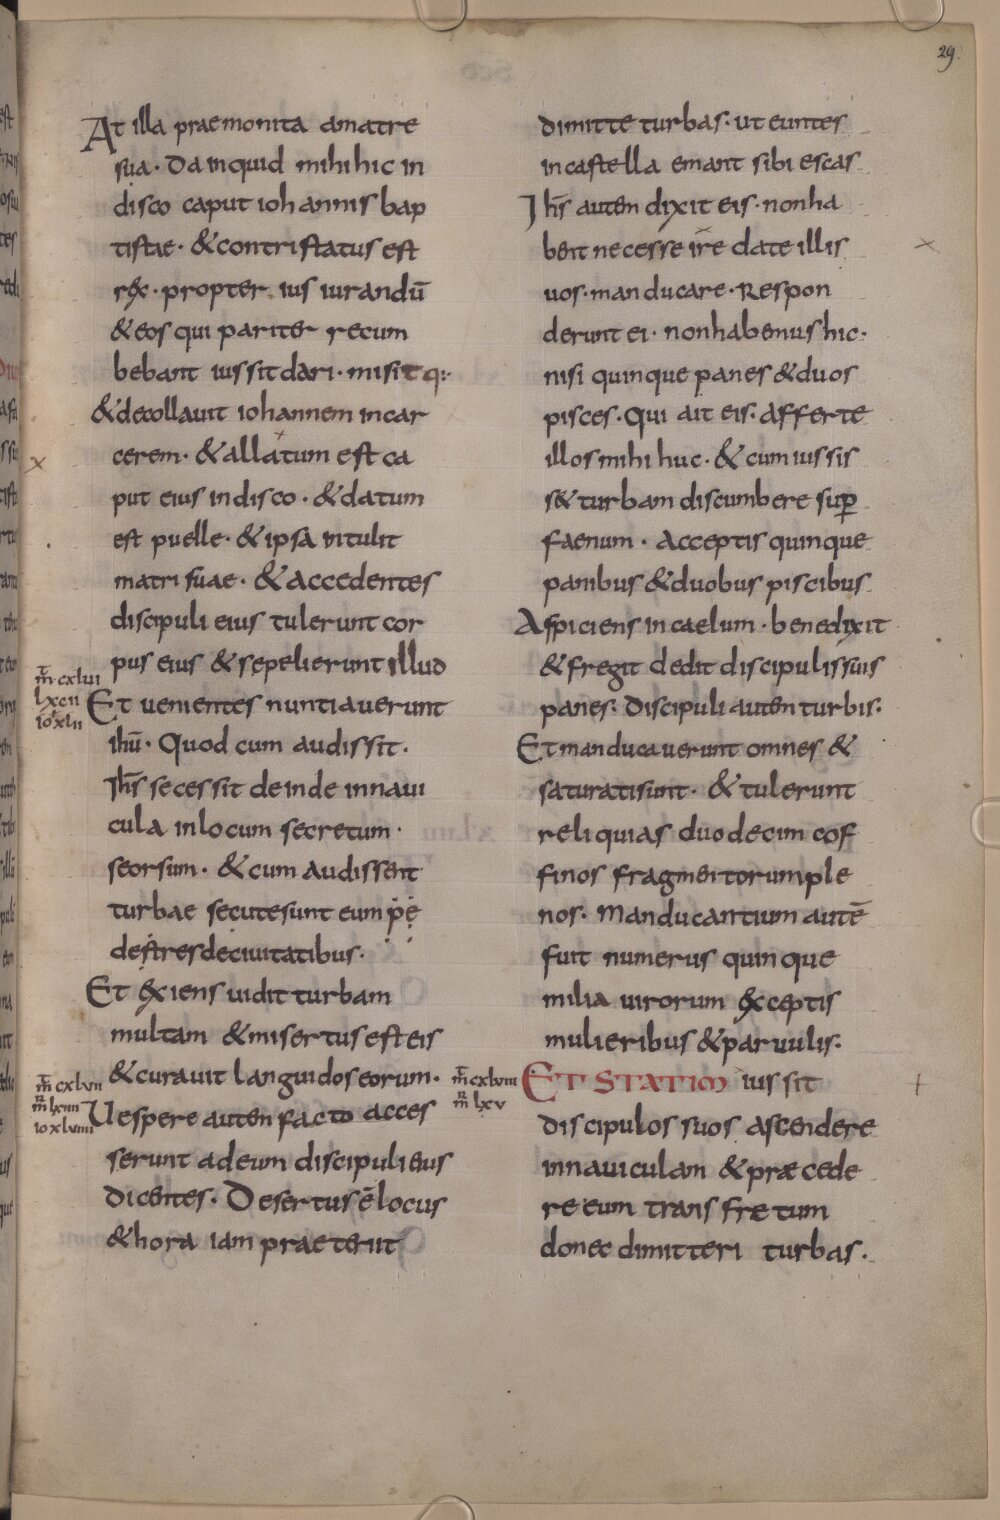 29
At illa praemonita amatre
sua · Da inquid mihi hic in
disco caput iohannis bap
tistae · & contristatus est
rex · propter ius iurandū
& eos qui pariter recum
bebant iussit dari · misitq:·
& decollauit iohannem incar
cerem · & allatum est ca
put eius indisco · & datum
est puelle · & ipsa intulit
matri suae · & accedentes
discipuli eius tulerunt cor
pus eius & sepelierunt illud
m̄ cxlui
lxcii
io xlii
Et uenientes nuntiauerunt
ihū · Quod cum audissit ·
Ihs̄ secessit deinde innaui
cula inlocum secretum ·
seorsum · & cum audissent
turbae secutesunt eum pe
destresdeciuitatibus ·
Et exiens uidit turbam
multam & misertus est eis
& curauit languidos eorum ·
m̄ cxluii
m̄ lxiiii
io xluiiii
Uespere autem facto acces
serunt adeum discipuli eius
dicentes · Desertus ē locus
& hora iam praeteriit
dimitte turbas · ut euntes
incastella emant sibi escas
Ihs̄ autem dixit eis · nonha
bent necesse ire date illis
uos · manducare · Respon
derunt ei · nonhabemus hic ·
nisi quinque panes & duos
pisces · Qui ait eis · afferte
illos mihi huc · & cum iussis
s& turbam discumbere sup̄
faenum · Acceptis quinque
panibus & duobus piscibus
Aspiciens incaelum · benedixit
& fregit dedit discipulis suis
panes · Discipuli autem turbis ·
Et manducauerunt omnes &
saturatisunt · & tulerunt
reliquias duodecim cof
finos fragmentorum ple
nos · Manducantium autē
fuit numerus quinque
milia uirorum exceptis
mulieribus & paruulis ·
m̄ cxluiii
m̄ lxv
Et statim iussit
discipulos suos ascendere
innauiculam & præcede
re eum trans fretum
donec dimitteri turbas ·